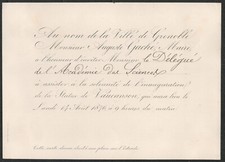 Au nom de la Ville de Grenoble
Monsieur Auguste Gaché, Maire
a l'honneur d'inviter Monsieur le Délégué
de l'Académie des Sciences
à assister à la solennité de l'inauguration
de la Statue de Vaucanson, qui aura lieu le
Lundi 14 Août 1876, à 9 heures du matin.
Cette carte donne droit à une place sur l'Estrade.